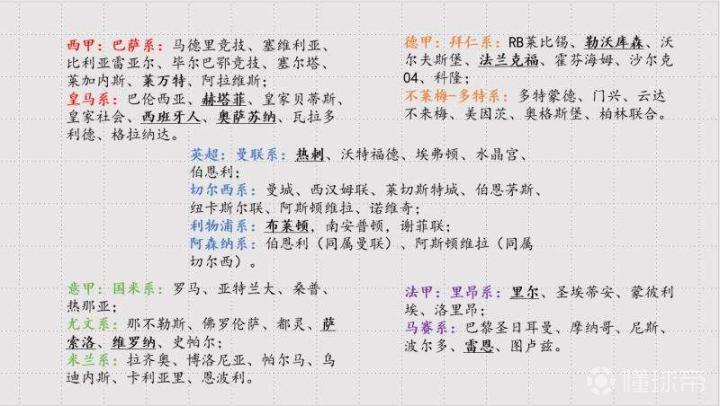 西甲：巴萨系：马德里竞技、塞维利亚、
比利亚雷亚尔、毕尔巴鄂竞技、塞尔塔、
莱加内斯、莱万特、阿拉维斯；
皇马系：巴伦西亚、赫塔菲、皇家贝蒂斯、
皇家社会、西班牙人、奥萨苏纳、瓦拉多
利德、格拉纳达。
德甲：拜仁系：RB莱比锡、勒沃库森、沃
尔夫斯堡、法兰克福、霍芬海姆、沙尔克
04、科隆；
不莱梅-多特系：多特蒙德、门兴、云达
不来梅、美因茨、奥格斯堡、柏林联合。
英超：曼联系：热刺、沃特福德、埃弗顿、水晶宫、
伯恩利；
切尔西系：曼城、西汉姆联、莱切斯特城、伯恩茅斯、
纽卡斯尔联、阿斯顿维拉、诺维奇；
利物浦系：布莱顿，南安普顿，谢菲联；
阿森纳系：伯恩利（同属曼联）、阿斯顿维拉（同属
切尔西）。
意甲：国米系：罗马、亚特兰大、桑普、
热那亚；
尤文系：那不勒斯、佛罗伦萨、都灵、萨
索洛、维罗纳、史帕尔；
米兰系：拉齐奥、博洛尼亚、帕尔马、乌
迪内斯、卡利亚里、恩波利。
法甲：里昂系：里尔、圣埃蒂安、蒙彼利
埃、洛里昂；
马赛系：巴黎圣日耳曼、摩纳哥、尼斯、
波尔多、雷恩、图卢兹。
懂球帝